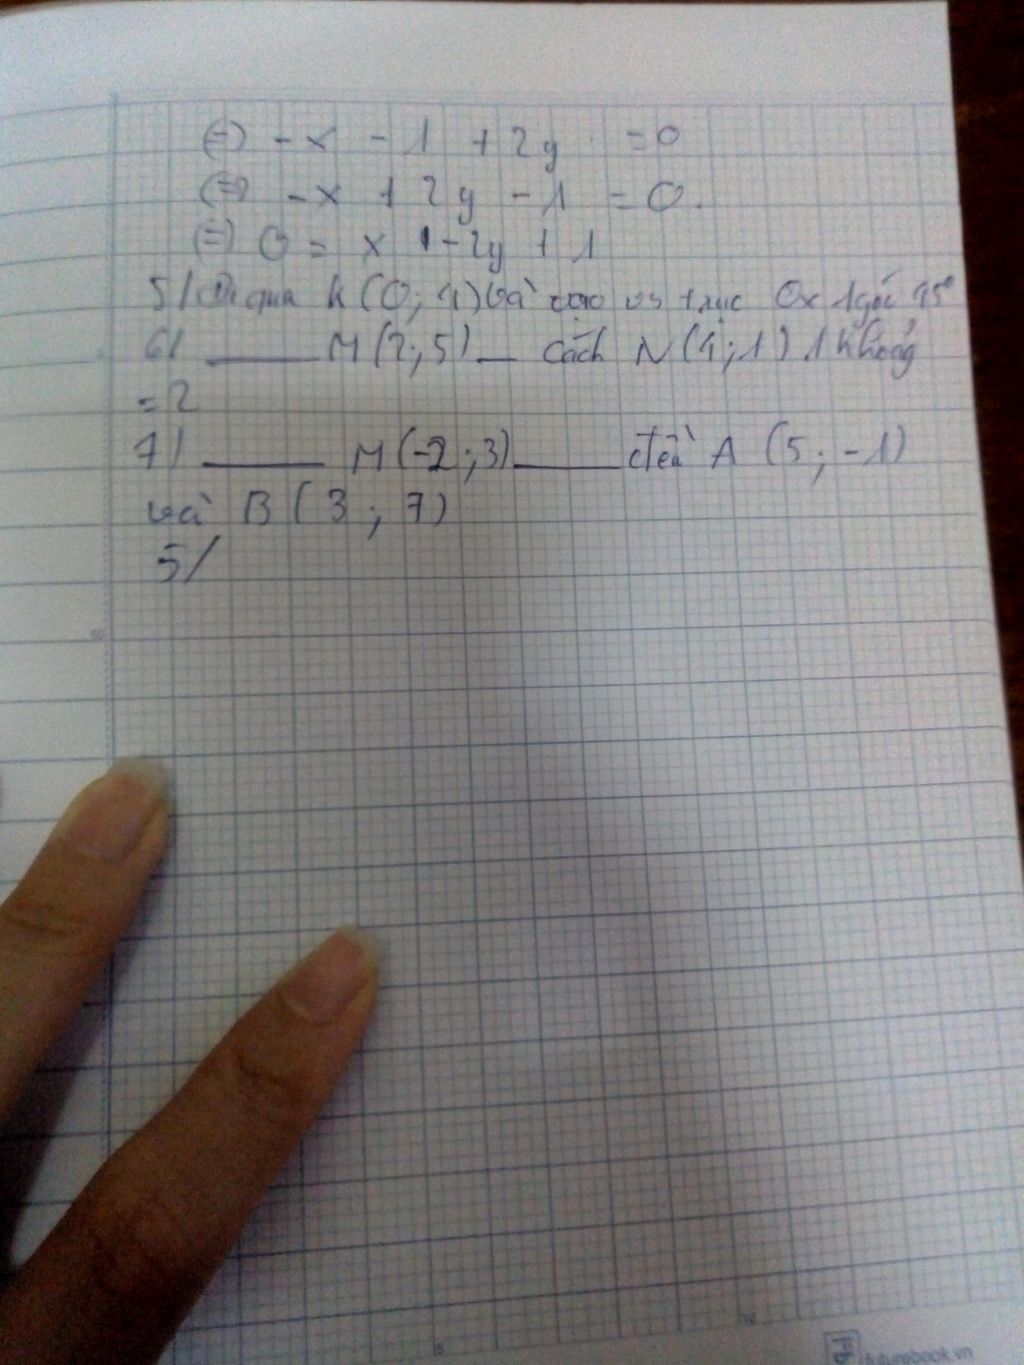 (=) -x - 1 + 2y = 0
(=) -x + 2y - 1 = 0.
(=) 0 = x - 2y + 1
5/ Đi qua K(0; 4) và tạo vs trục Ox 1 góc 45°
6/ ____ M(2;5) __ cách N(4;1) 1 khoảng
= 2
7/ ____ M(-2;3) ____ đều A (5; -1)
và B (3; 7)
5/
futurebook.vn